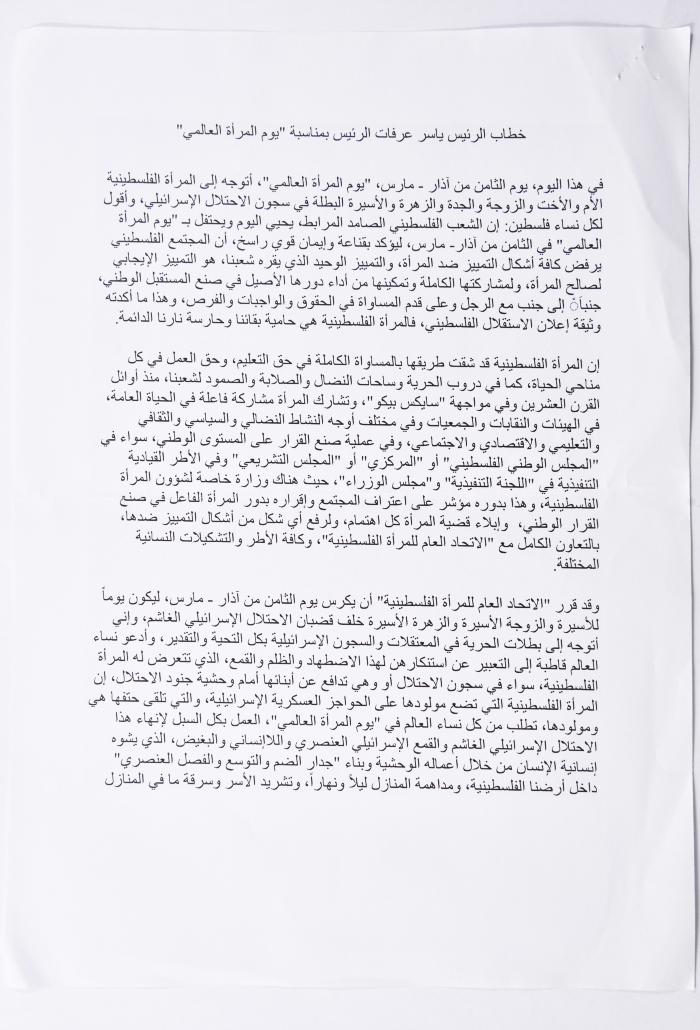 خطاب الرئيس ياسر عرفات الرئيس بمناسبة "يوم المرأة العالمي"
في هذا اليوم، يوم الثامن من آذار ـ مارس، "يوم المرأة العالمي"، أتوجه إلى المرأة الفلسطينية
الأم والأخت والزوجة والجدة والزهرة والأسيرة البطلة في سجون الاحتلال الإسرائيلي، وأقول
لكل نساء فلسطين: إن الشعب الفلسطيني الصامد المرابط، يحيي اليوم ويحتفل بـ "يوم المرأة
العالمي" في الثامن من آذارـ مارس، ليؤكد بقناعة وإيمان قوي راسخ، أن المجتمع الفلسطيني
يرفض كافة أشكال التمييز ضد المرأة، والتمييز الوحيد الذي يقره شعبنا، هو التمييز الإيجابي
لصالح المرأة، ولمشاركتها الكاملة وتمكينها من أداء دورها الأصيل في صنع المستقبل الوطني،
جنباً إلى جنب مع الرجل وعلى قدم المساواة في الحقوق والواجبات والفرص، وهذا ما أكدته
وثيقة إعلان الاستقلال الفلسطيني، فالمرأة الفلسطينية هي حامية بقائنا وحارسة نارنا الدائمة.
إن المرأة الفلسطينية قد شقت طريقها بالمساواة الكاملة في حق التعليم، وحق العمل في كل
مناحي الحياة، كما في دروب الحرية وساحات النضال والصلابة والصمود لشعبنا، منذ أوائل
القرن العشرين وفي مواجهة "سايكس بيكو"، وتشارك المرأة مشاركة فاعلة في الحياة العامة،
في الهيئات والنقابات والجمعيات وفي مختلف أوجه النشاط النضالي والسياسي والثقافي
والتعليمي والاقتصادي والاجتماعي، وفي عملية صنع القرار على المستوى الوطني، سواء في
"المجلس الوطني الفلسطيني" أو "المركزي" أو "المجلس التشريعي" وفي الأطر القيادية
التنفيذية في "اللجنة التنفيذية" و"مجلس الوزراء"، حيث هناك وزارة خاصة لشؤون المرأة
الفلسطينية، وهذا بدوره مؤشر على اعتراف المجتمع وإقراره بدور المرأة الفاعل في صنع
القرار الوطني، وإيلاء قضية المرأة كل اهتمام، ولرفع أي شكل من أشكال التمييز ضدها،
بالتعاون الكامل مع "الاتحاد العام للمرأة الفلسطينية"، وكافة الأطر والتشكيلات النسائية
المختلفة.
وقد قرر "الاتحاد العام للمرأة الفلسطينية" أن يكرس يوم الثامن من آذار ـ مارس، ليكون يوماً
للأسيرة والزوجة الأسيرة والزهرة الأسيرة خلف قضبان الاحتلال الإسرائيلي الغاشم، وإني
أتوجه إلى بطلات الحرية في المعتقلات والسجون الإسرائيلية بكل التحية والتقدير، وأدعو نساء
العالم قاطبة إلى التعبير عن استنكارهن لهذا الاضطهاد والظلم والقمع، الذي تتعرض له المرأة
الفلسطينية، سواء في سجون الاحتلال أو وهي تدافع عن أبنائها أمام وحشية جنود الاحتلال، إن
المرأة الفلسطينية التي تضع مولودها على الحواجز العسكرية الإسرائيلية، والتي تلقى حتفها هي
ومولودها، تطلب من كل نساء العالم في "يوم المرأة العالمي"، العمل بكل السبل لإنهاء هذا
الاحتلال الإسرائيلي الغاشم والقمع الإسرائيلي العنصري واللاإنساني والبغيض، الذي يشوه
إنسانية الإنسان من خلال أعماله الوحشية وبناء "جدار الضم والتوسع والفصل العنصري"
داخل أرضنا الفلسطينية، ومداهمة المنازل ليلاً ونهاراً، وتشريد الأسر وسرقة ما في المنازل